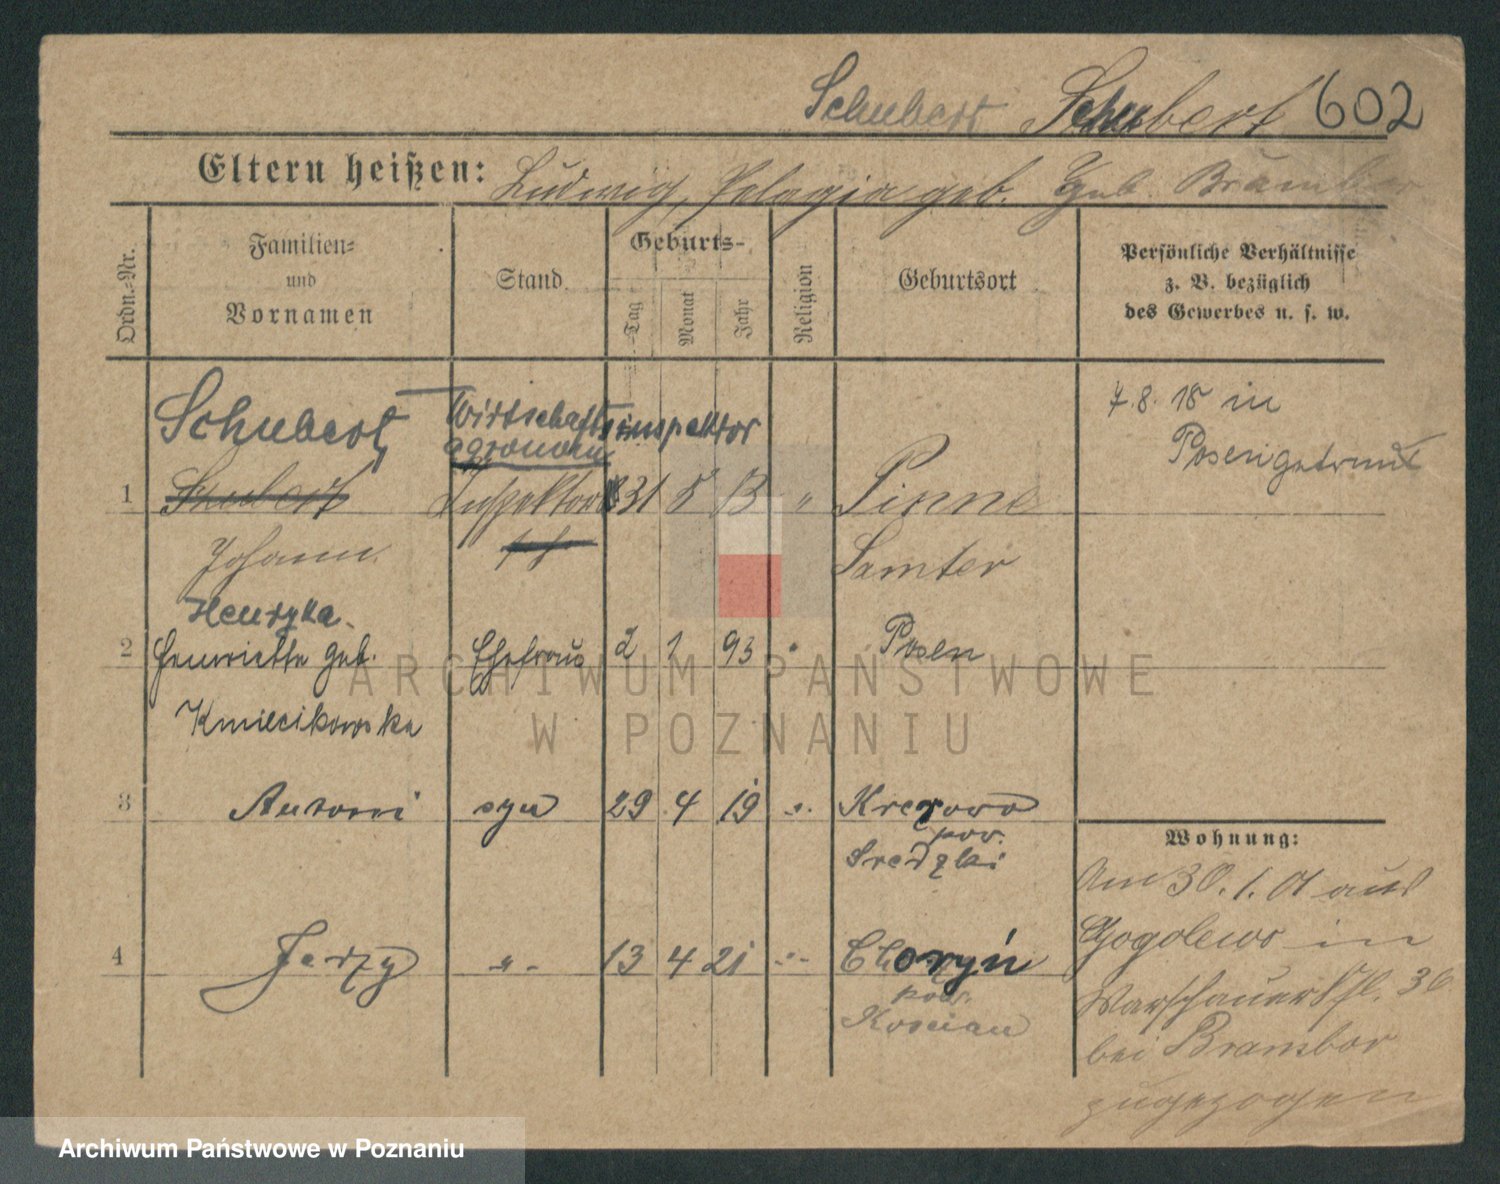 Schubert Schubert 602
Eltern heißen: Ludwig, Pelagia geb. Brambor
Ordn.-Nr.
Familien-
und
Vornamen
Stand
Geburts-
Tag
Monat
Jahr
Religion
Geburtsort
Persönliche Verhältnisse
z. B. bezüglich
des Gewerbes u. s. w.
Schubert
Wirtschaftsinspektor
agronom
1 Inspektor 31 5 "
Pinne
Johann
Samter
7.8.18 in
Posen getraut
Henryka
2 Henriette geb. Ehefrau 2 1 93 " Posen
Kmiecikowska
3 Antoni syn 29 4 19 " Krerowo
pow.
Sredzki
4 Jerzy " 13 4 21 " Choryń
pow.
Koscian
Wohnung:
Am 30.1.01 aus
Gogolewo in
Warschauerstr. 36
bei Brambor
zugezogen
ARCHIWUM PAŃSTWOWE
W POZNANIU
Archiwum Państwowe w Poznaniu